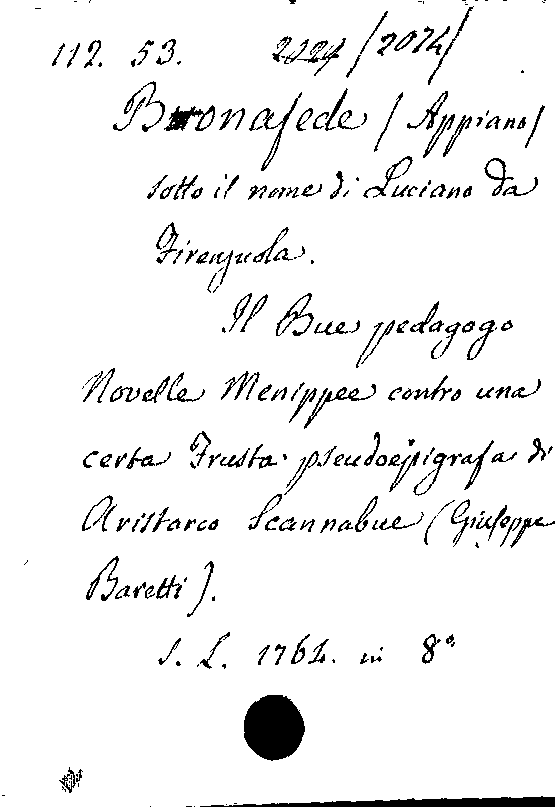 112. 53. 2024 /2074/
Buonafede / Appiano/
sotto il nome di Luciano da
Firenzuola.
Il Bue pedagogo
Novelle Menippee contro una
certa Frusta pseudoepigrafa di
Aristarco Scannabue (Giuseppe
Baretti).
S. L. 1764. in 8°